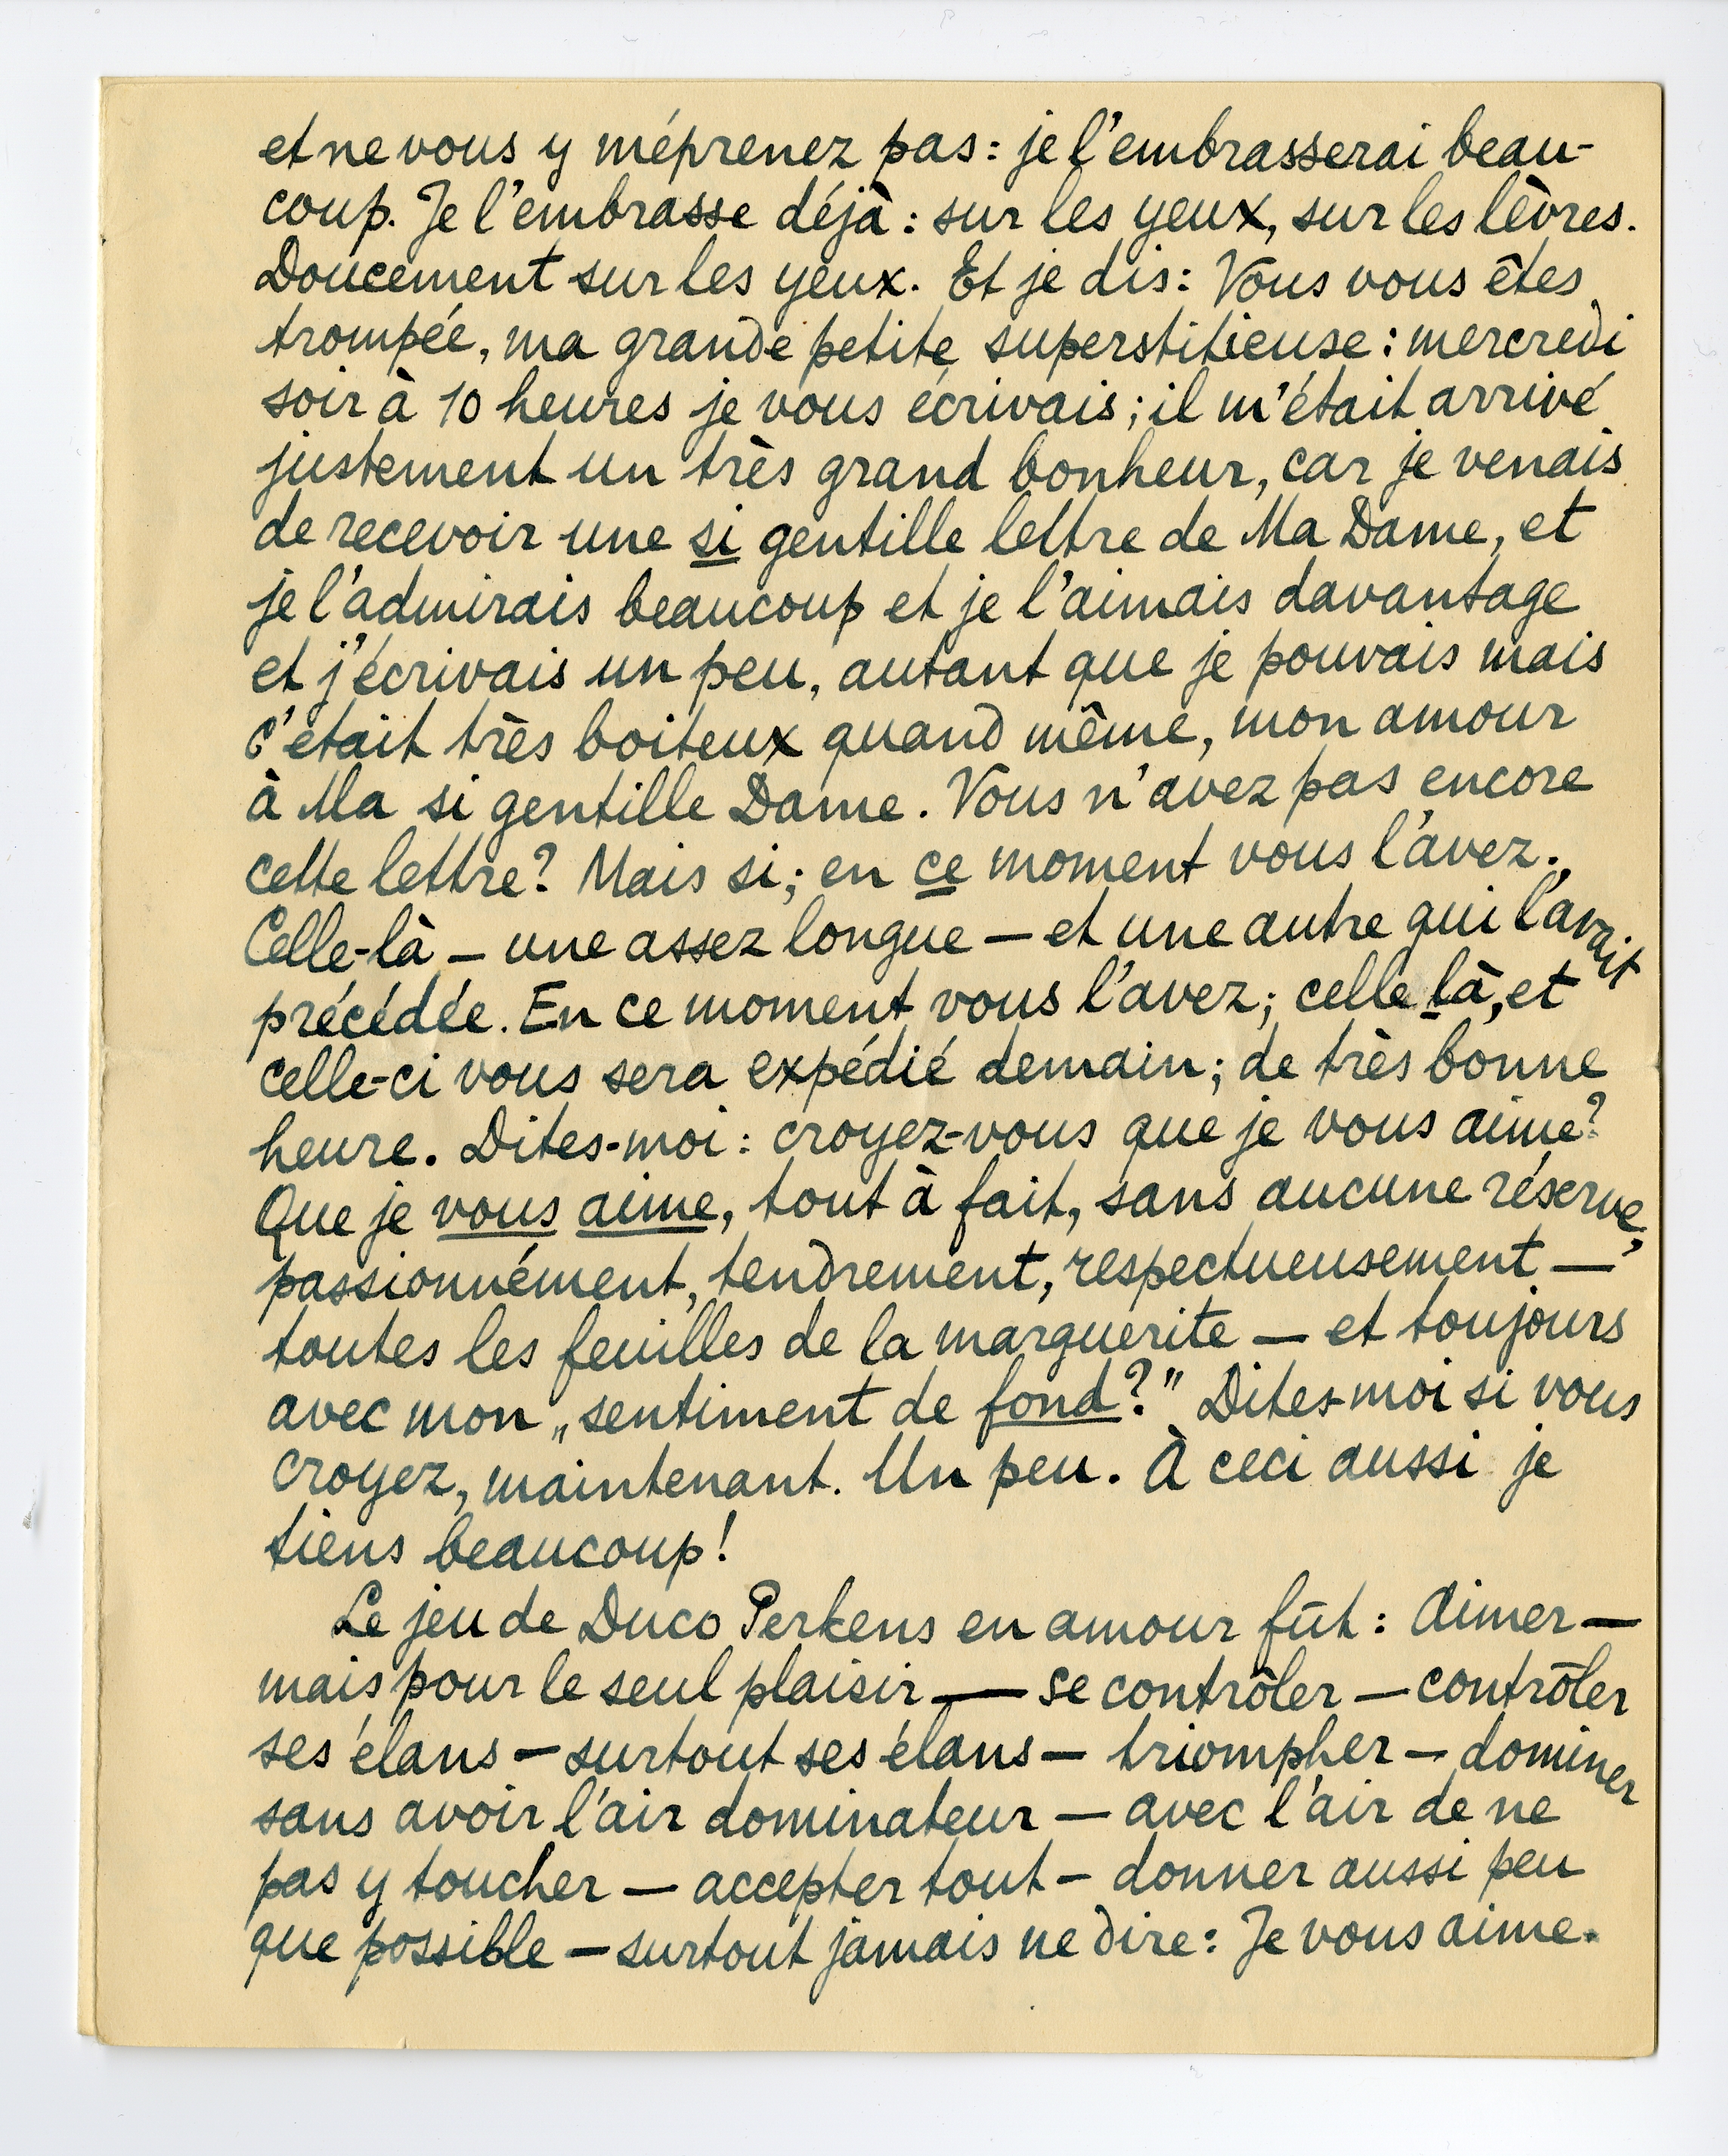 et ne vous y méprenez pas : je l'embrasserai beau-
coup. Je l'embrasse déjà : sur les yeux, sur les lèvres.
Doucement sur les yeux. Et je dis : Vous vous êtes
trompée, ma grande petite superstitieuse : mercredi
soir à 10 heures je vous écrivais ; il m'était arrivé
justement un très grand bonheur, car je venais
de recevoir une si gentille lettre de Ma Dame, et
je l'admirais beaucoup et je l'aimais davantage
et j'écrivais un peu, autant que je pouvais mais
c'était très boiteux quand même, mon amour
à Ma si gentille Dame. Vous n'avez pas encore
cette lettre? Mais si ; en ce moment vous l'avez.
Celle-là – une assez longue – et une autre qui l'avait
précédée. En ce moment vous l'avez ; celle là, et
celle-ci vous sera expédié demain ; de très bonne
heure. Dites-moi : croyez-vous que je vous aime?
Que je vous aime, tout à fait, sans aucune réserve,
passionnément, tendrement, respectueusement —
toutes les feuilles de la marguerite — et toujours
avec mon „sentiment de fond?” Dites-moi si vous
croyez, maintenant. Un peu. À ceci aussi je
tiens beaucoup!
Le jeu de Duco Perkens en amour fût : Aimer —
mais pour le seul plaisir — se contrôler — contrôler
ses élans — surtout ses élans — triompher — dominer
sans avoir l'air dominateur — avec l'air de ne
pas y toucher — accepter tout — donner aussi peu
que possible — surtout jamais ne dire : Je vous aime.